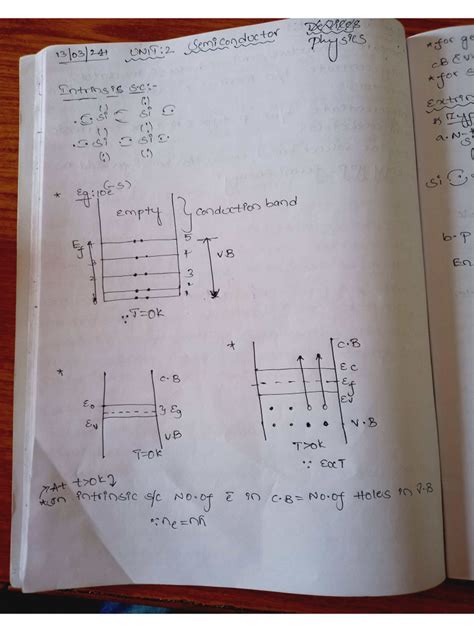 13/03/24 UNIT:2 Semiconductor Devices physics
Intrinsic s/c:-
Si Si
Si Si
* Eg:10e(-s)
empty
conduction band
Ef
5
4
3
2
1
VB
∵T=0K
*
C.B
Ec
Ev
Eg
VB
T=0K
*
C.B
Ec
Ef
Ev
V.B
T>0K
∵ E∝T
At t>0K
* on intrinsic s/c No.of ē in C.B = No.of Holes in V.B
∵ne=nh
* for
CB EV
* for s
Extrin
* Typ
a.N-
Si
b.P
En